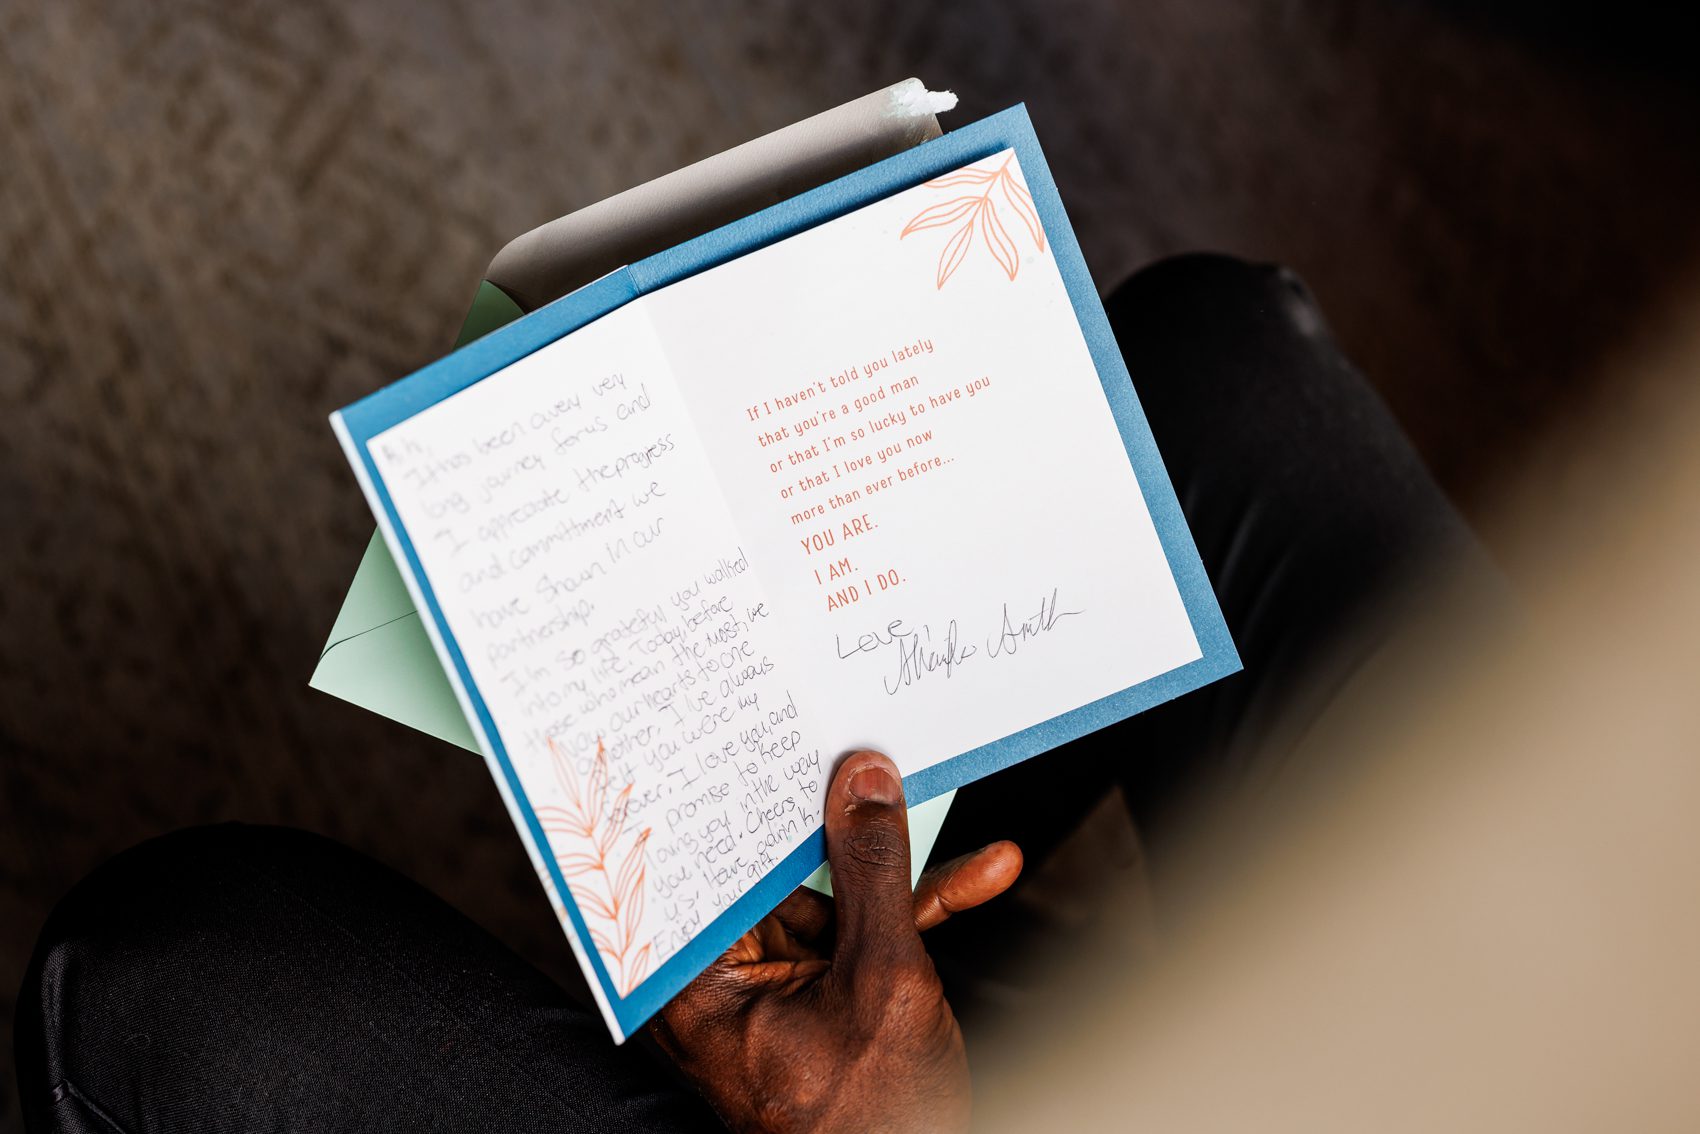 It has been a very very
long journey for us and
I appreciate the progress
and committment we
have shown in our
partnership.
I'm so grateful you walked
into my life. Today, before
those who mean the most, we
vow our hearts to one
another. I've always
felt you were my
forever. I love you, and
I promise to keep
loving you in the way
you need. Cheers to
us, have a drink &
Enjoy your gift.
If I haven't told you lately
that you're a good man
or that I'm so lucky to have you
or that I love you now
more than ever before...
YOU ARE.
I AM.
AND I DO.
Love,
Smith